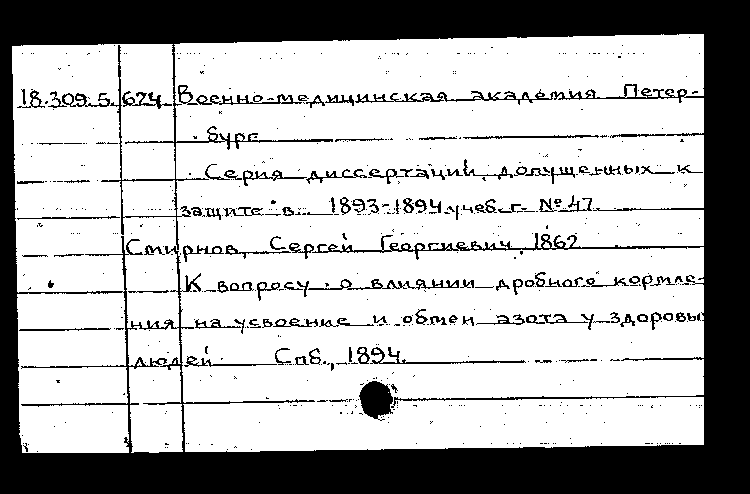 18.309.5.674 Военно-медицинская академия. Петер-
бург
Серия диссертаций, допущенных к
защите в 1893-1894 учеб. г. № 47.
Смирнов, Сергей Георгиевич, 1862
К вопросу о влиянии дробного кормле-
ния на усвоение и обмен азота у здоровы
людей. Спб., 1894.